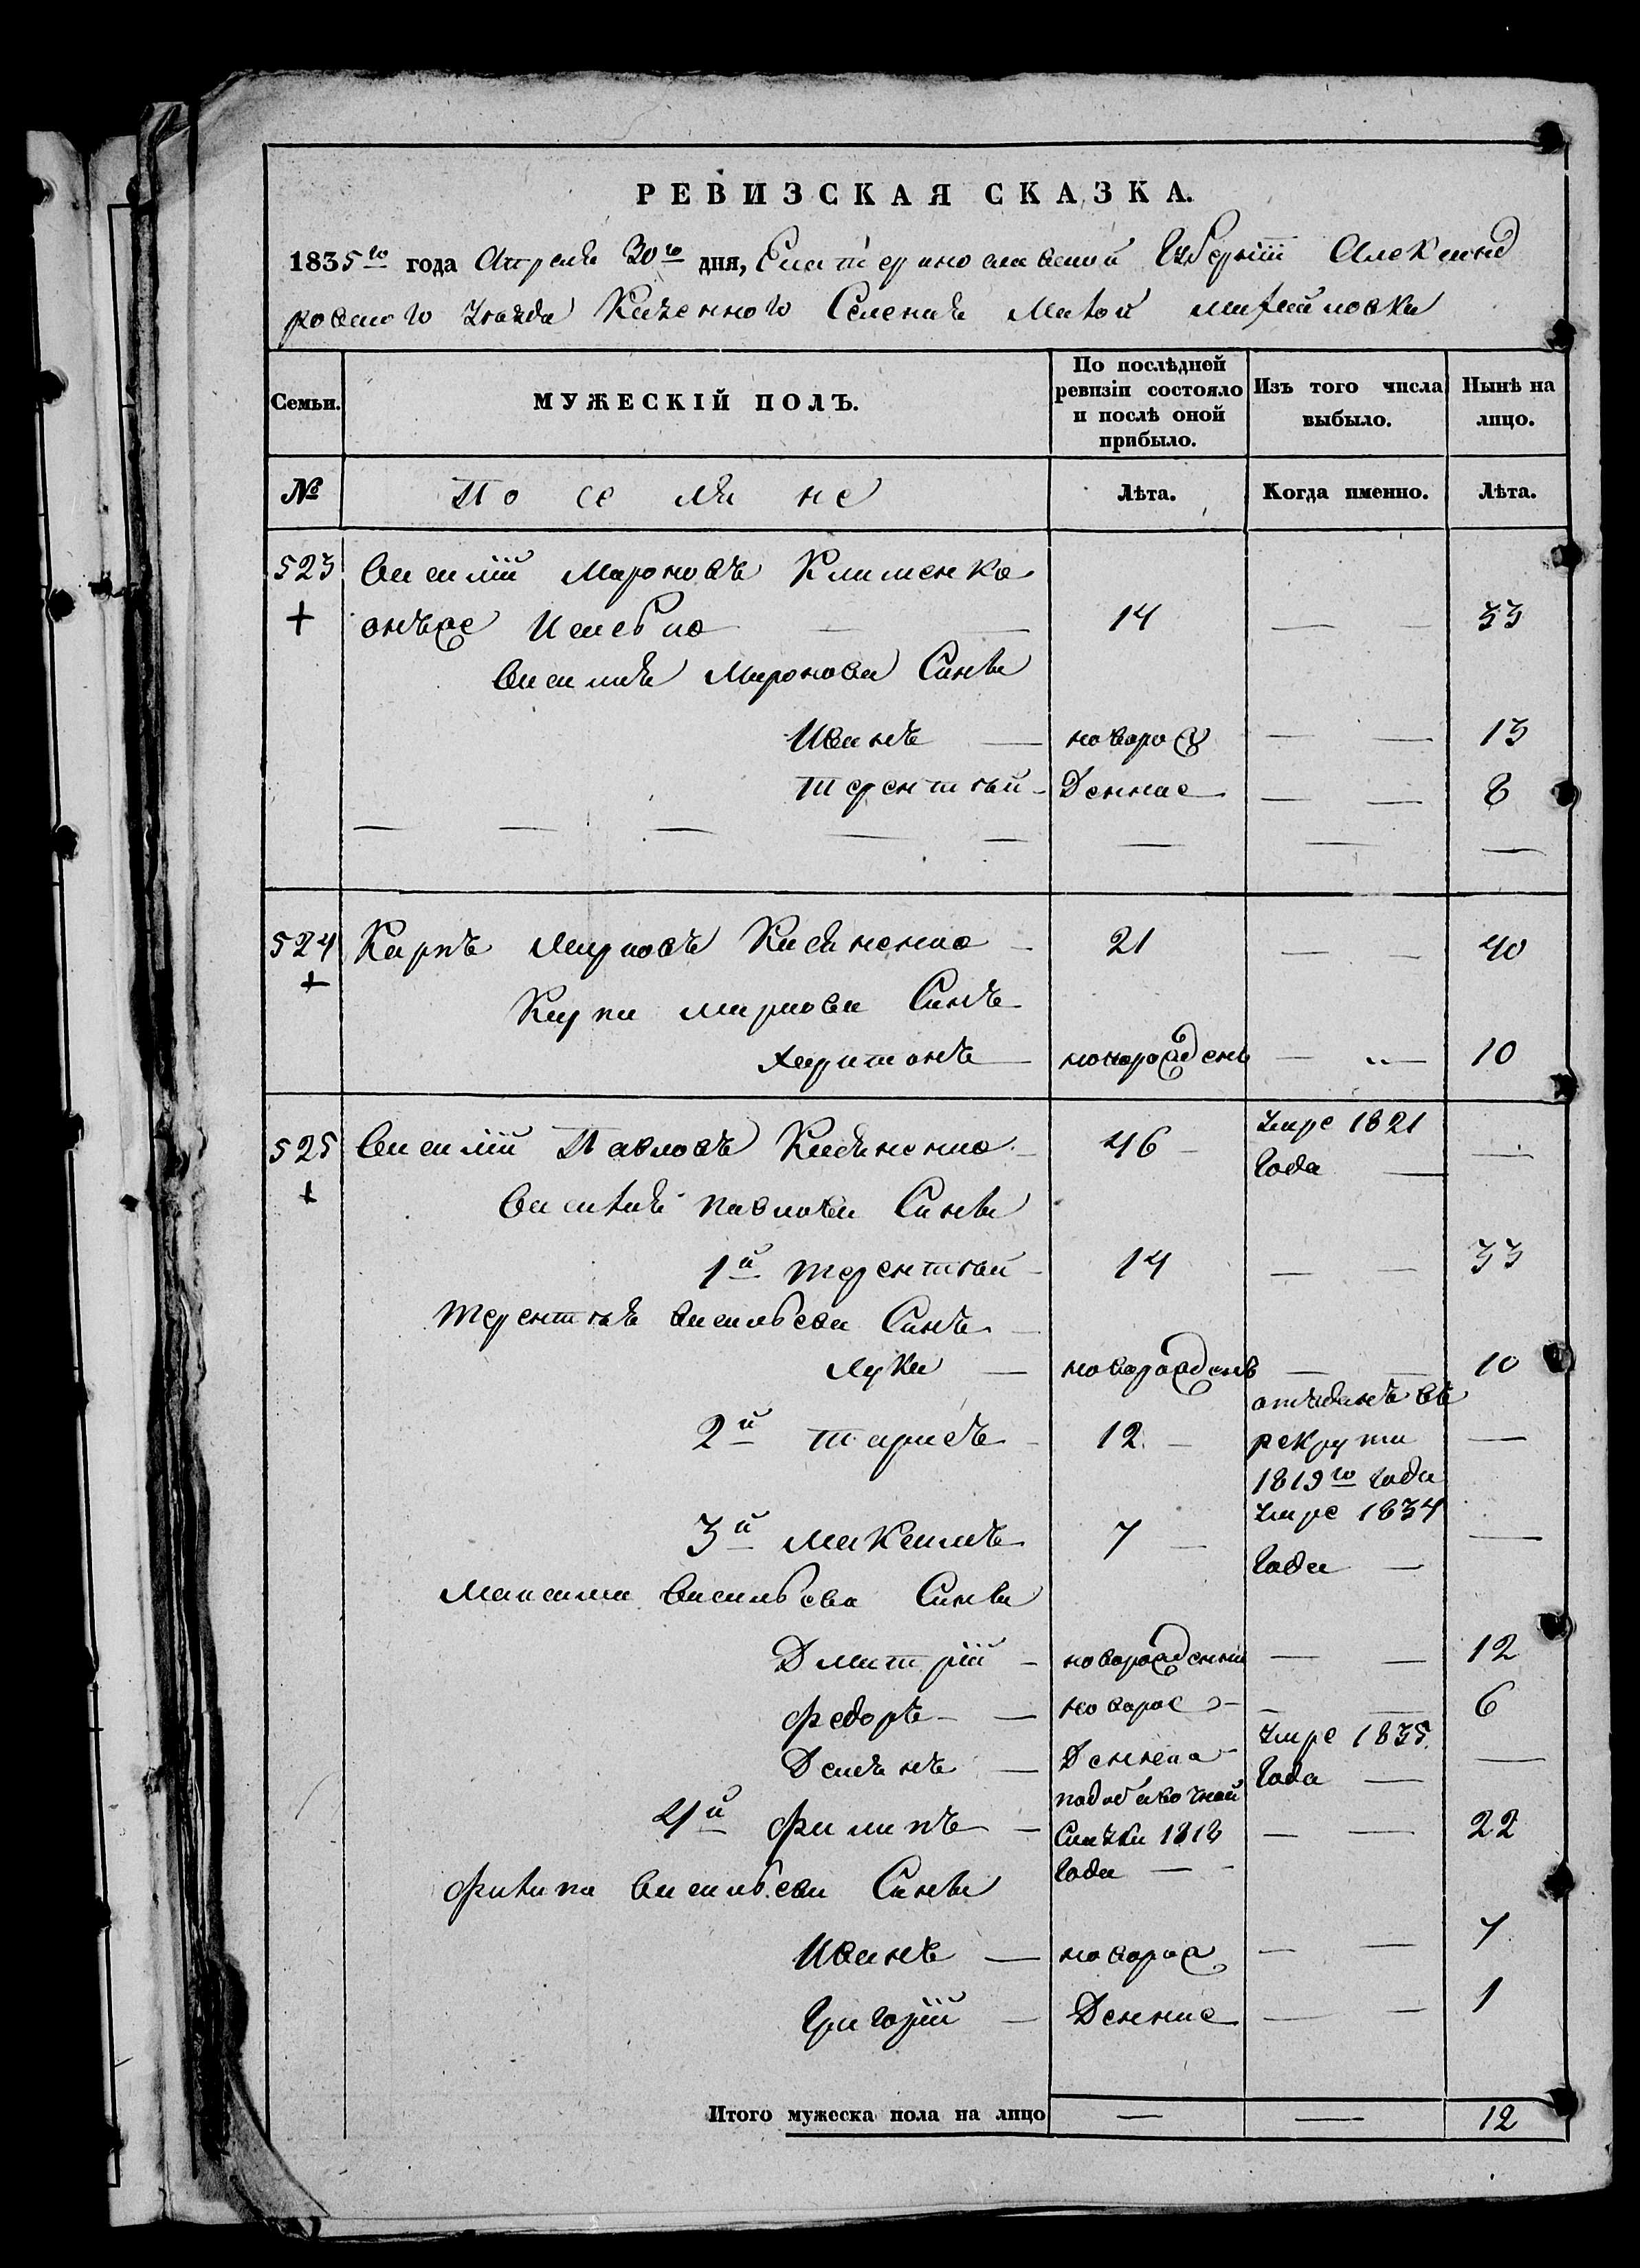 РЕВИЗСКАЯ СКАЗКА.
1835го года Апреля 30го дня, Екатеринославской Губернии Александ
ровского Уезда Казенного Селения Малой Михайловки
Семьи. МУЖЕСКІЙ ПОЛЪ. По послѣдней ревизіи состояло и послѣ оной прибыло. Изъ того числа выбыло. Нынѣ на лицо.
№ Поселяне Лѣта. Когда именно. Лѣта.
523 Василій Мироновъ Клименко
онъже 14 — — 33
Василія Миронова Синьи
Иванъ — новорож — — 13
Терентій — Денние — — 8
524 Карпъ Марковъ 21 — — 40
Карпа Маркова Синъ
Харитонъ — новорожденъ — — 10
525 Василій Павловъ 46 — умре 1821 Года —
Василія Павлова Синьи
1й Терентій — 14 — — 33
Терентія Васильева Синъ —
Лука — новорожденъ — — 10
2й Тарасъ — 12 — отъданъ въ рекруты 1819го Года —
3й Максимъ 7 — умре 1834 Года — —
Максима Васильева Синьи
Дмитрій — новорожденни — — 12
Федоръ — новорож — — 6
Демянъ — Деннена — умре 1835 Года — —
4й Филипъ — подобавочной Сказки 1818 Года — — — 22
Филипа Васильева Синьи
Иванъ — новорож — — 7
Григорій — Денние — — 1
Итого мужеска пола на лицо — — 12